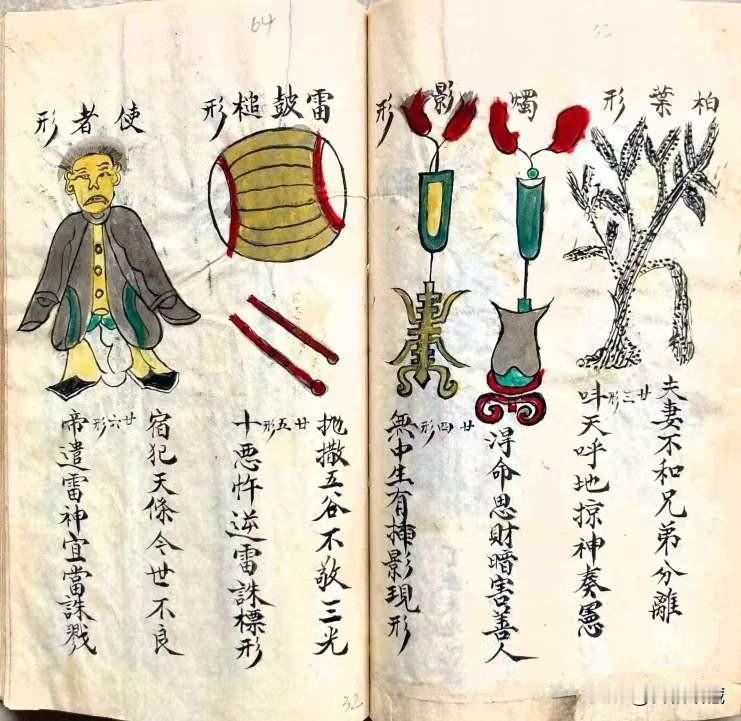 53
柏葉形
夫妻不和兄弟分離
廿三形
呌天呼地掠神奏
燭影形
淂命思財暗害善人
廿四形
無中生有捕影現形
64
雷鼓槌形
抛撒五谷不敬三光
廿五形
十悪忤逆雷誅標形
使者形
宿犯天條今世不良
廿六形
帝遣雷神宜當誅戮
32
藏